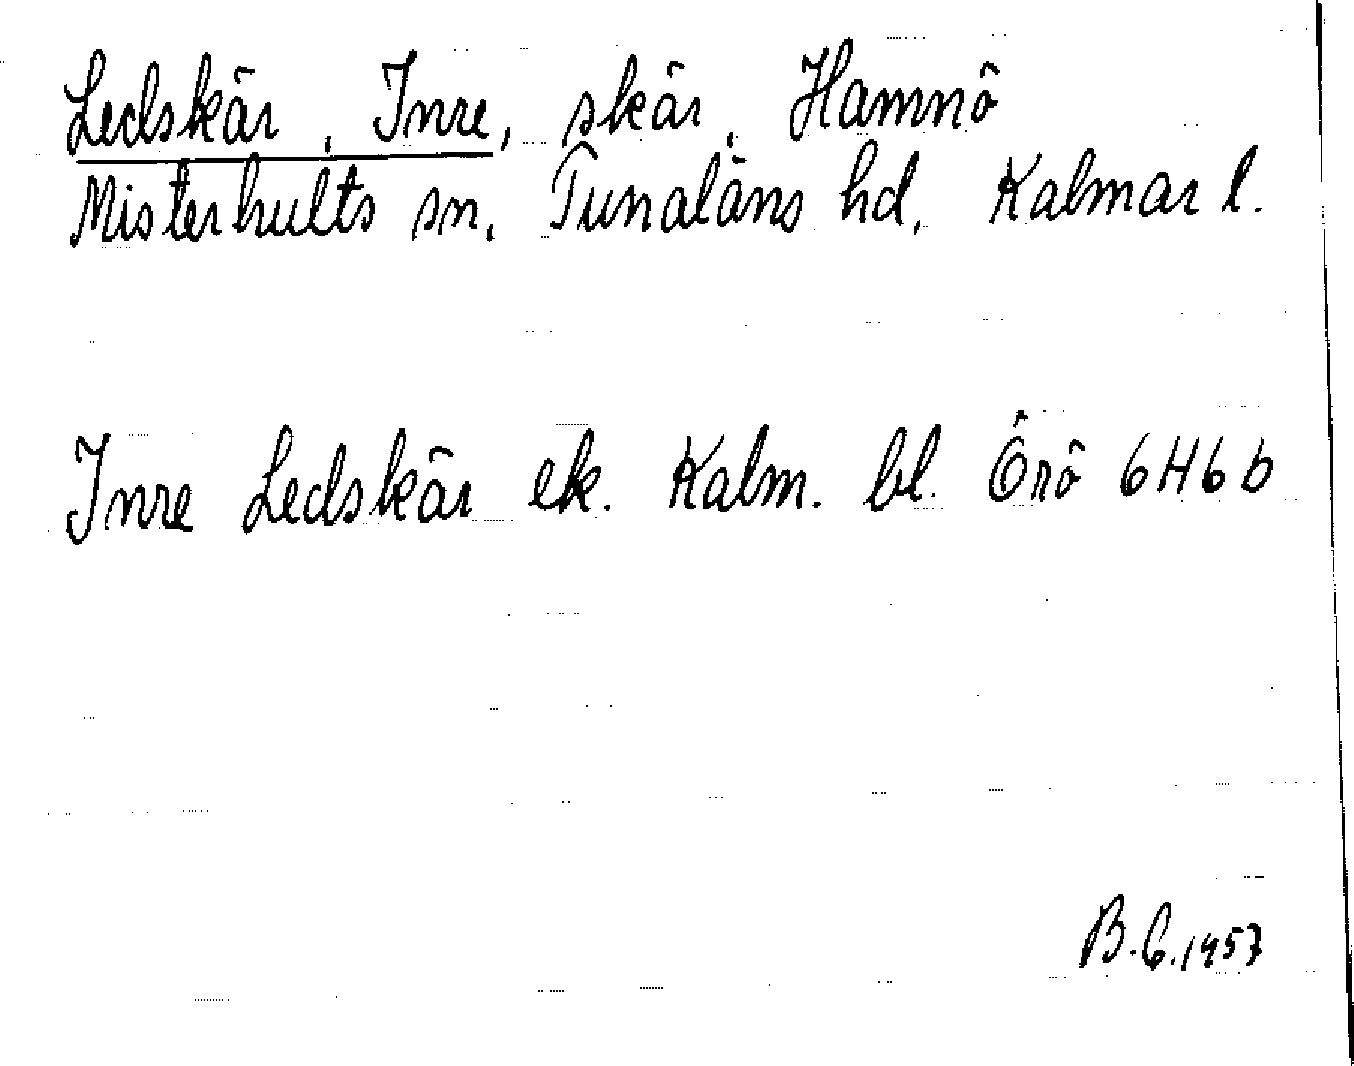 Ledskär, Inre, skär, Hamnö
Misterhults sn. Tunaläns hd. Kalmar l.
Inre Ledskär ek. Kalm. bl. Örö 6H6b
B.C. 1957